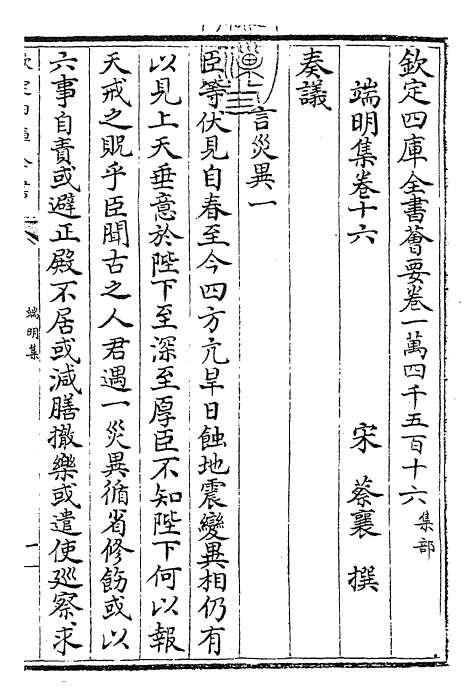 欽定四庫全書薈要卷一萬四千五百十六集部
端明集卷十六 宋 蔡襄 撰
奏議
言災異一
臣等伏見自春至今四方亢旱日蝕地震變異相仍有
以見上天垂意於陛下至深至厚臣不知陛下何以報
天戒之貺乎臣聞古之人君遇一災異循省修飭或以
六事自責或避正殿不居或減膳撤樂或遣使廵察求
端明集
一